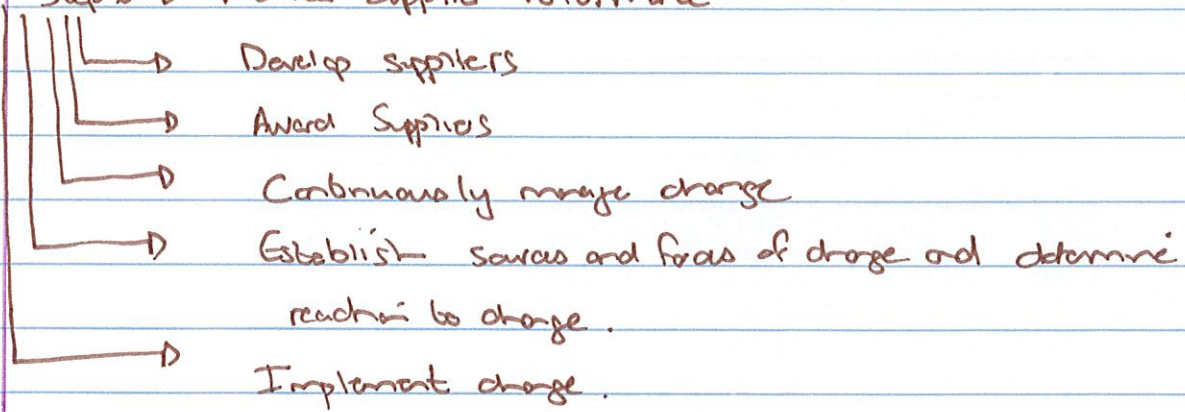 Supplier
Develop suppliers
Award Suppliers
Continuously manage change
Establish sources and focus of change and determine
reaction to change.
Implement change.